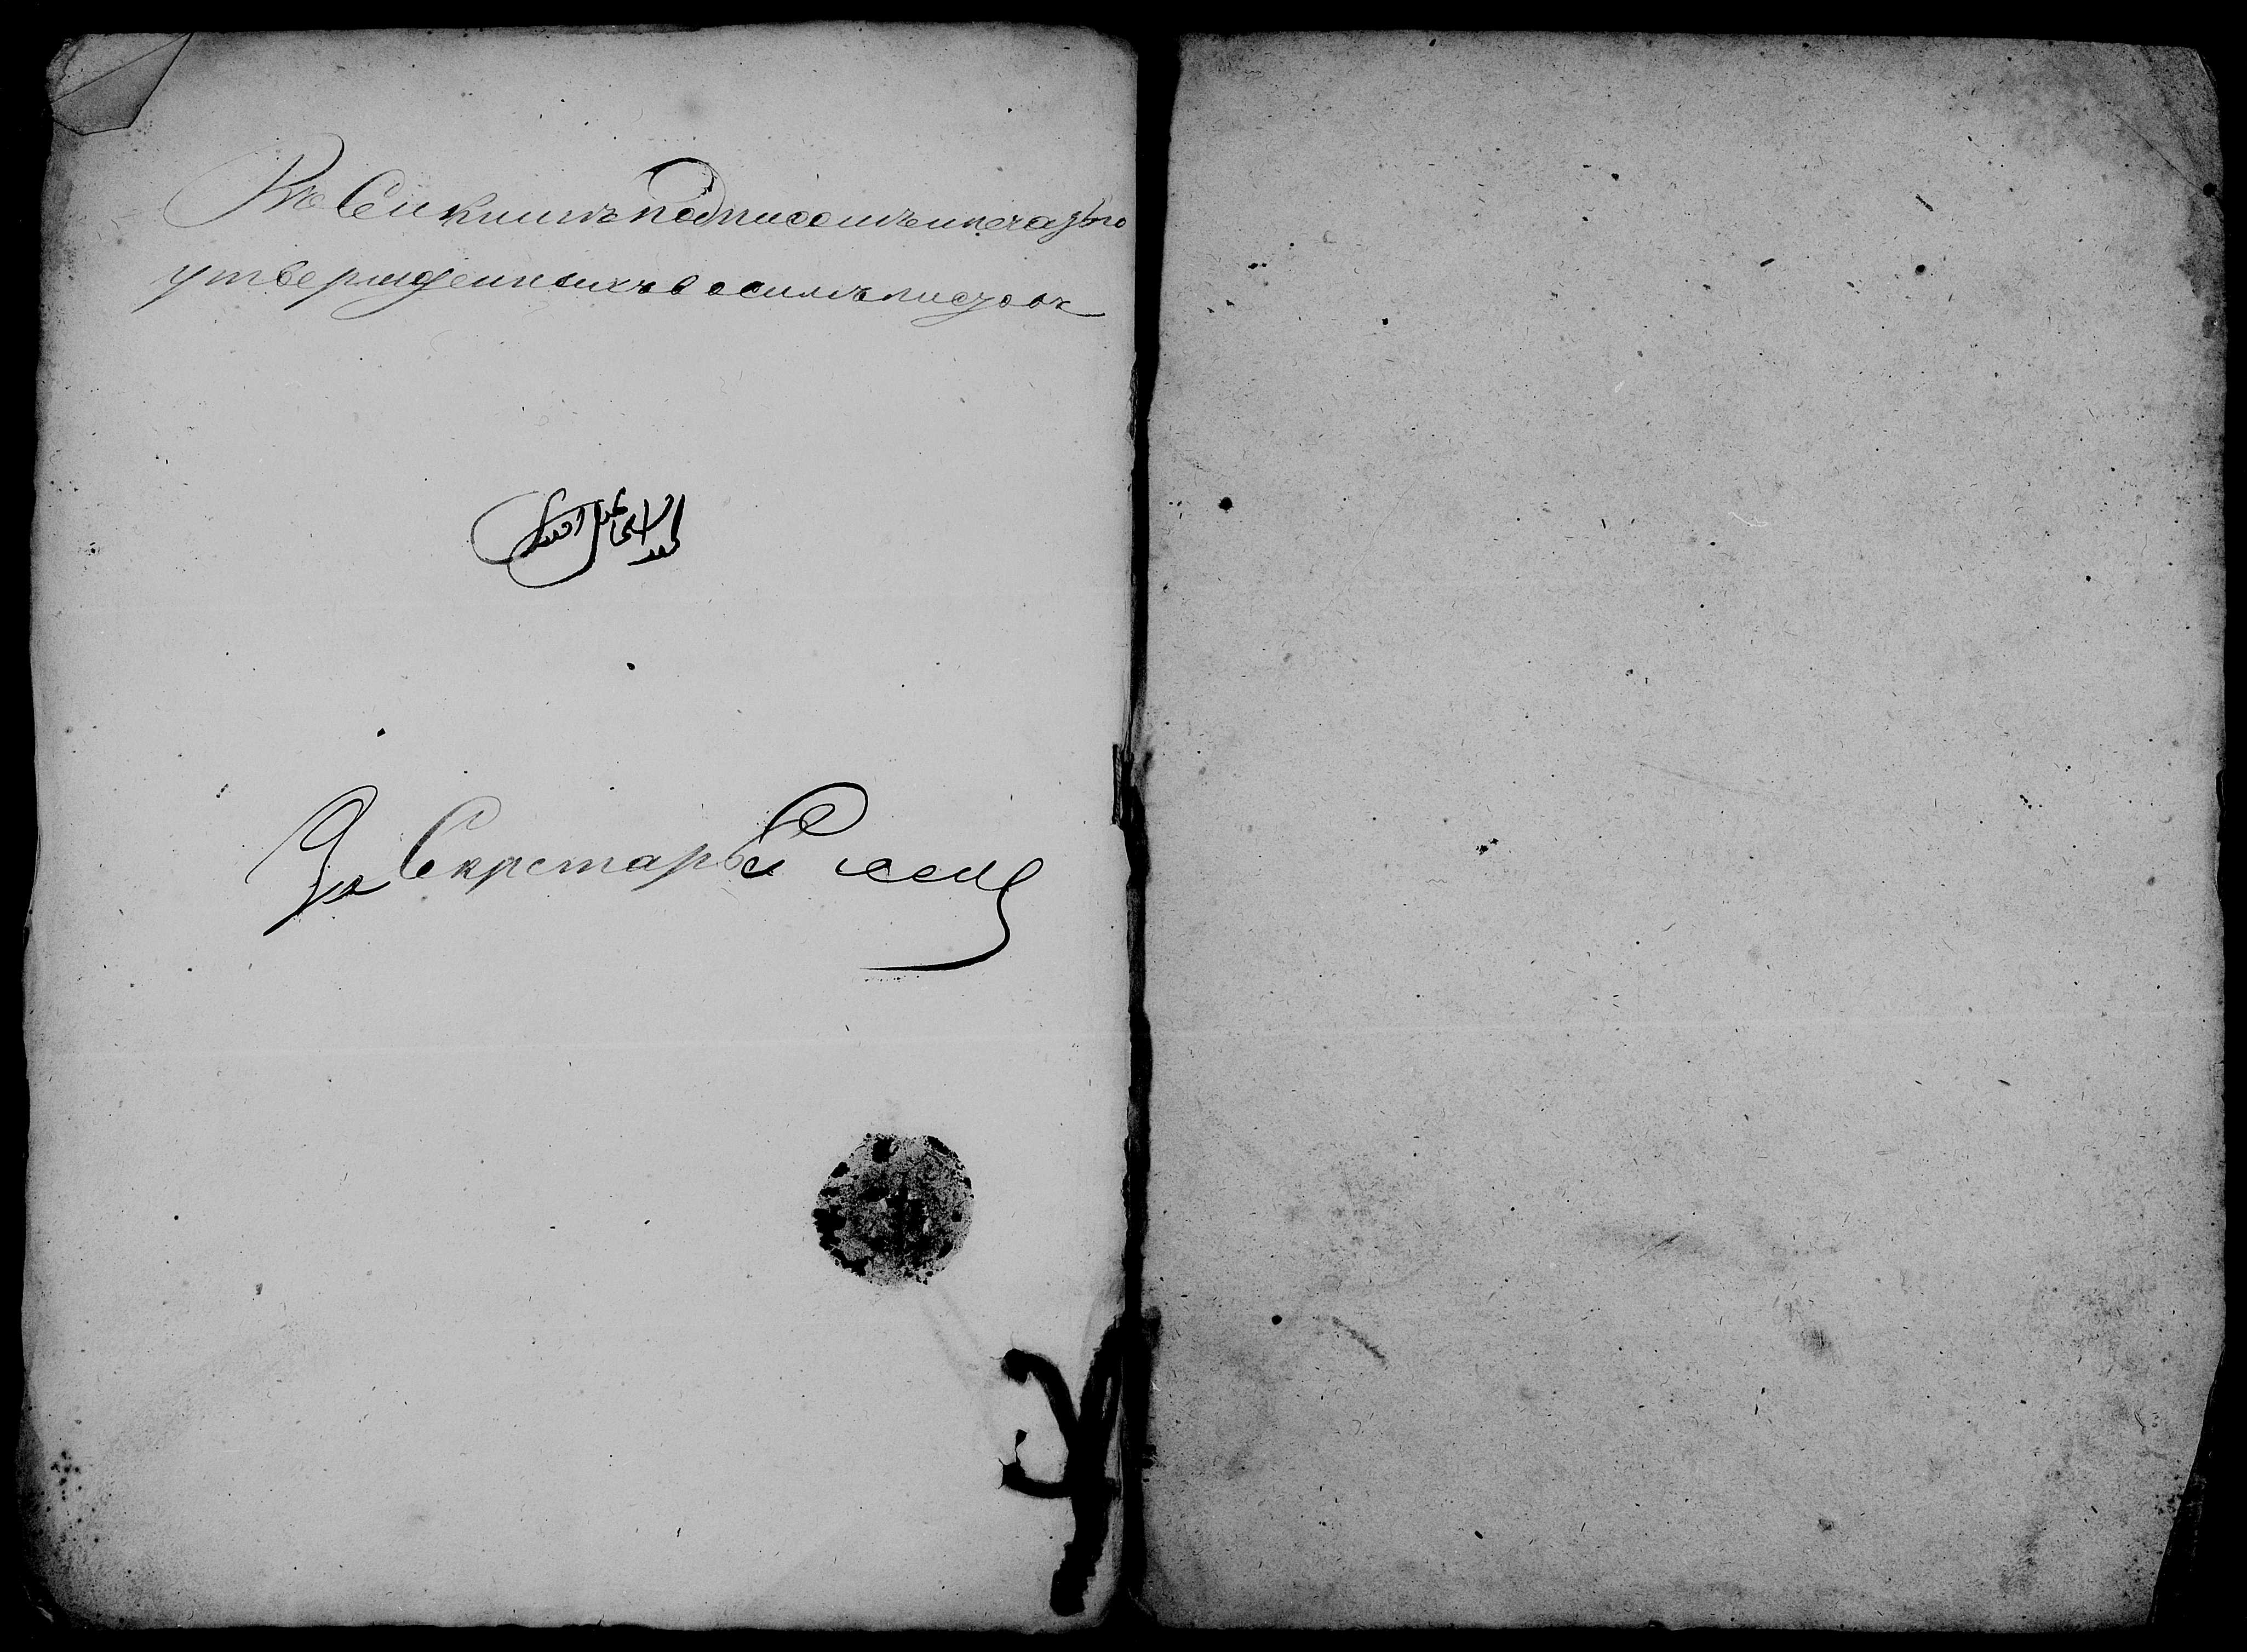 Въ Сей книгѣ подписомъ и печатью
утвержденныхъ восимъ листовъ
За Секретарь